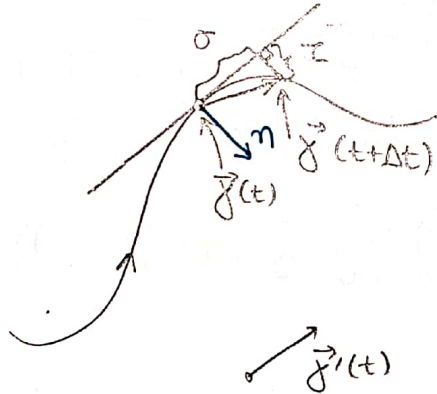 σ
τ
n
γ⃗(t+Δt)
γ⃗(t)
γ⃗'(t)